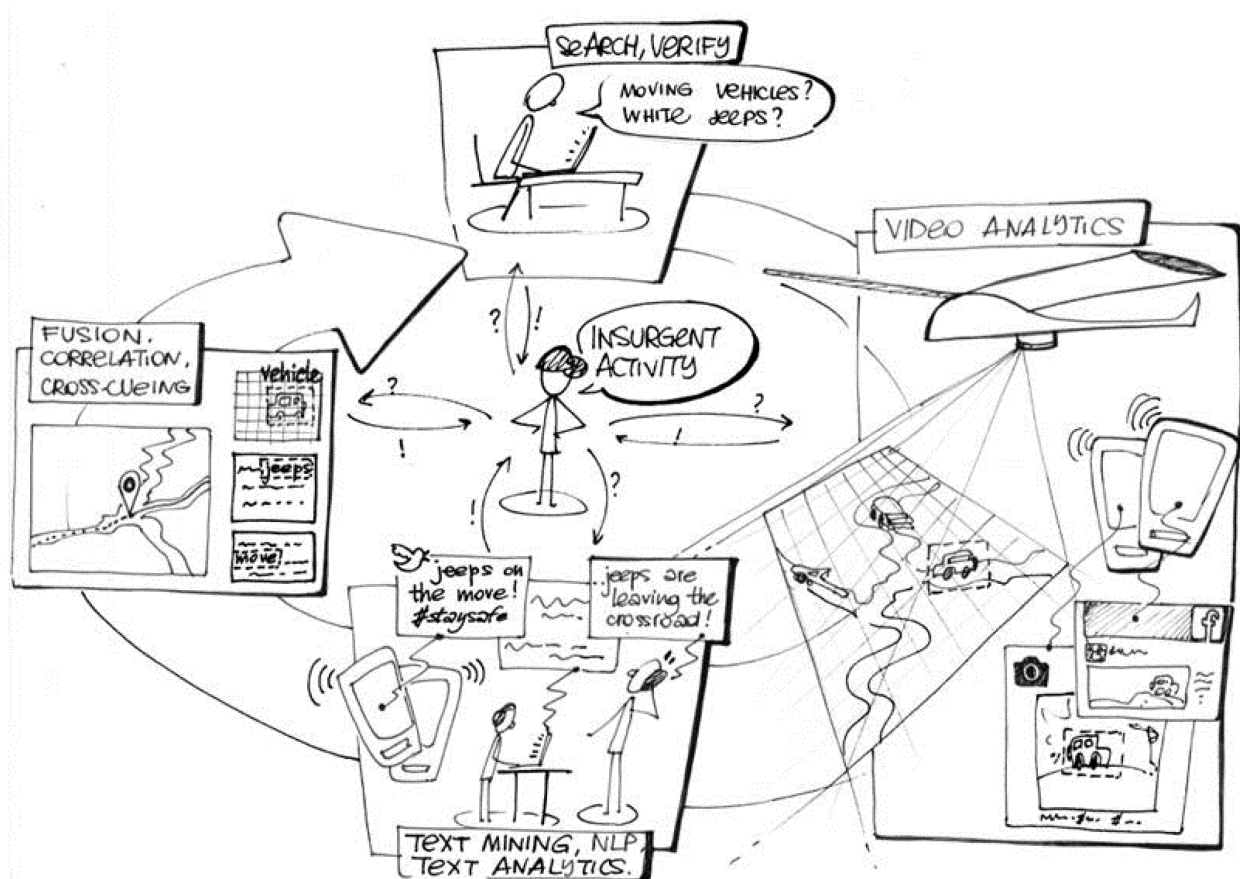 SEARCH, VERIFY
MOVING VEHICLES?
WHITE JEEPS?
VIDEO ANALYTICS
FUSION,
CORRELATION,
CROSS-CUEING
vehicle
jeeps
move
?
!
INSURGENT
ACTIVITY
?
!
?
!
!
?
jeeps on
the move!
#staysafe
jeeps are
leaving the
crossroad!
f
TEXT MINING, NLP,
TEXT ANALYTICS.